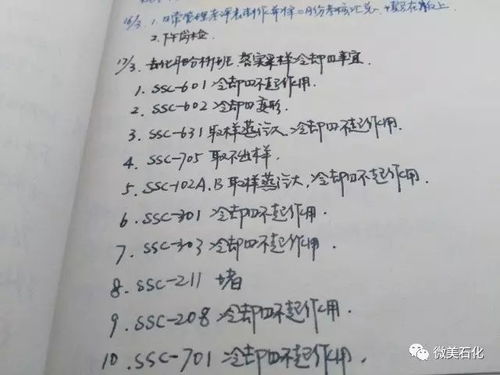 16/3. 1. 日常管理考评表制作并将二月份考核汇总
2. 下午岗检
17/3. 去化验分析班,落实采样冷却四事宜.
1. SSC-601 冷却四不起作用.
2. SSC-602 冷却四变形.
3. SSC-631 取样蒸汽大,冷却四不起作用.
4. SSC-705 取不出样.
5. SSC-102A.B 取样蒸汽大,冷却四不起作用.
6. SSC-301 冷却四不起作用.
7. SSC-303 冷却四不起作用.
8. SSC-211 堵
9. SSC-208 冷却四不起作用.
10. SSC-701 冷却四不起作用.
微美石化